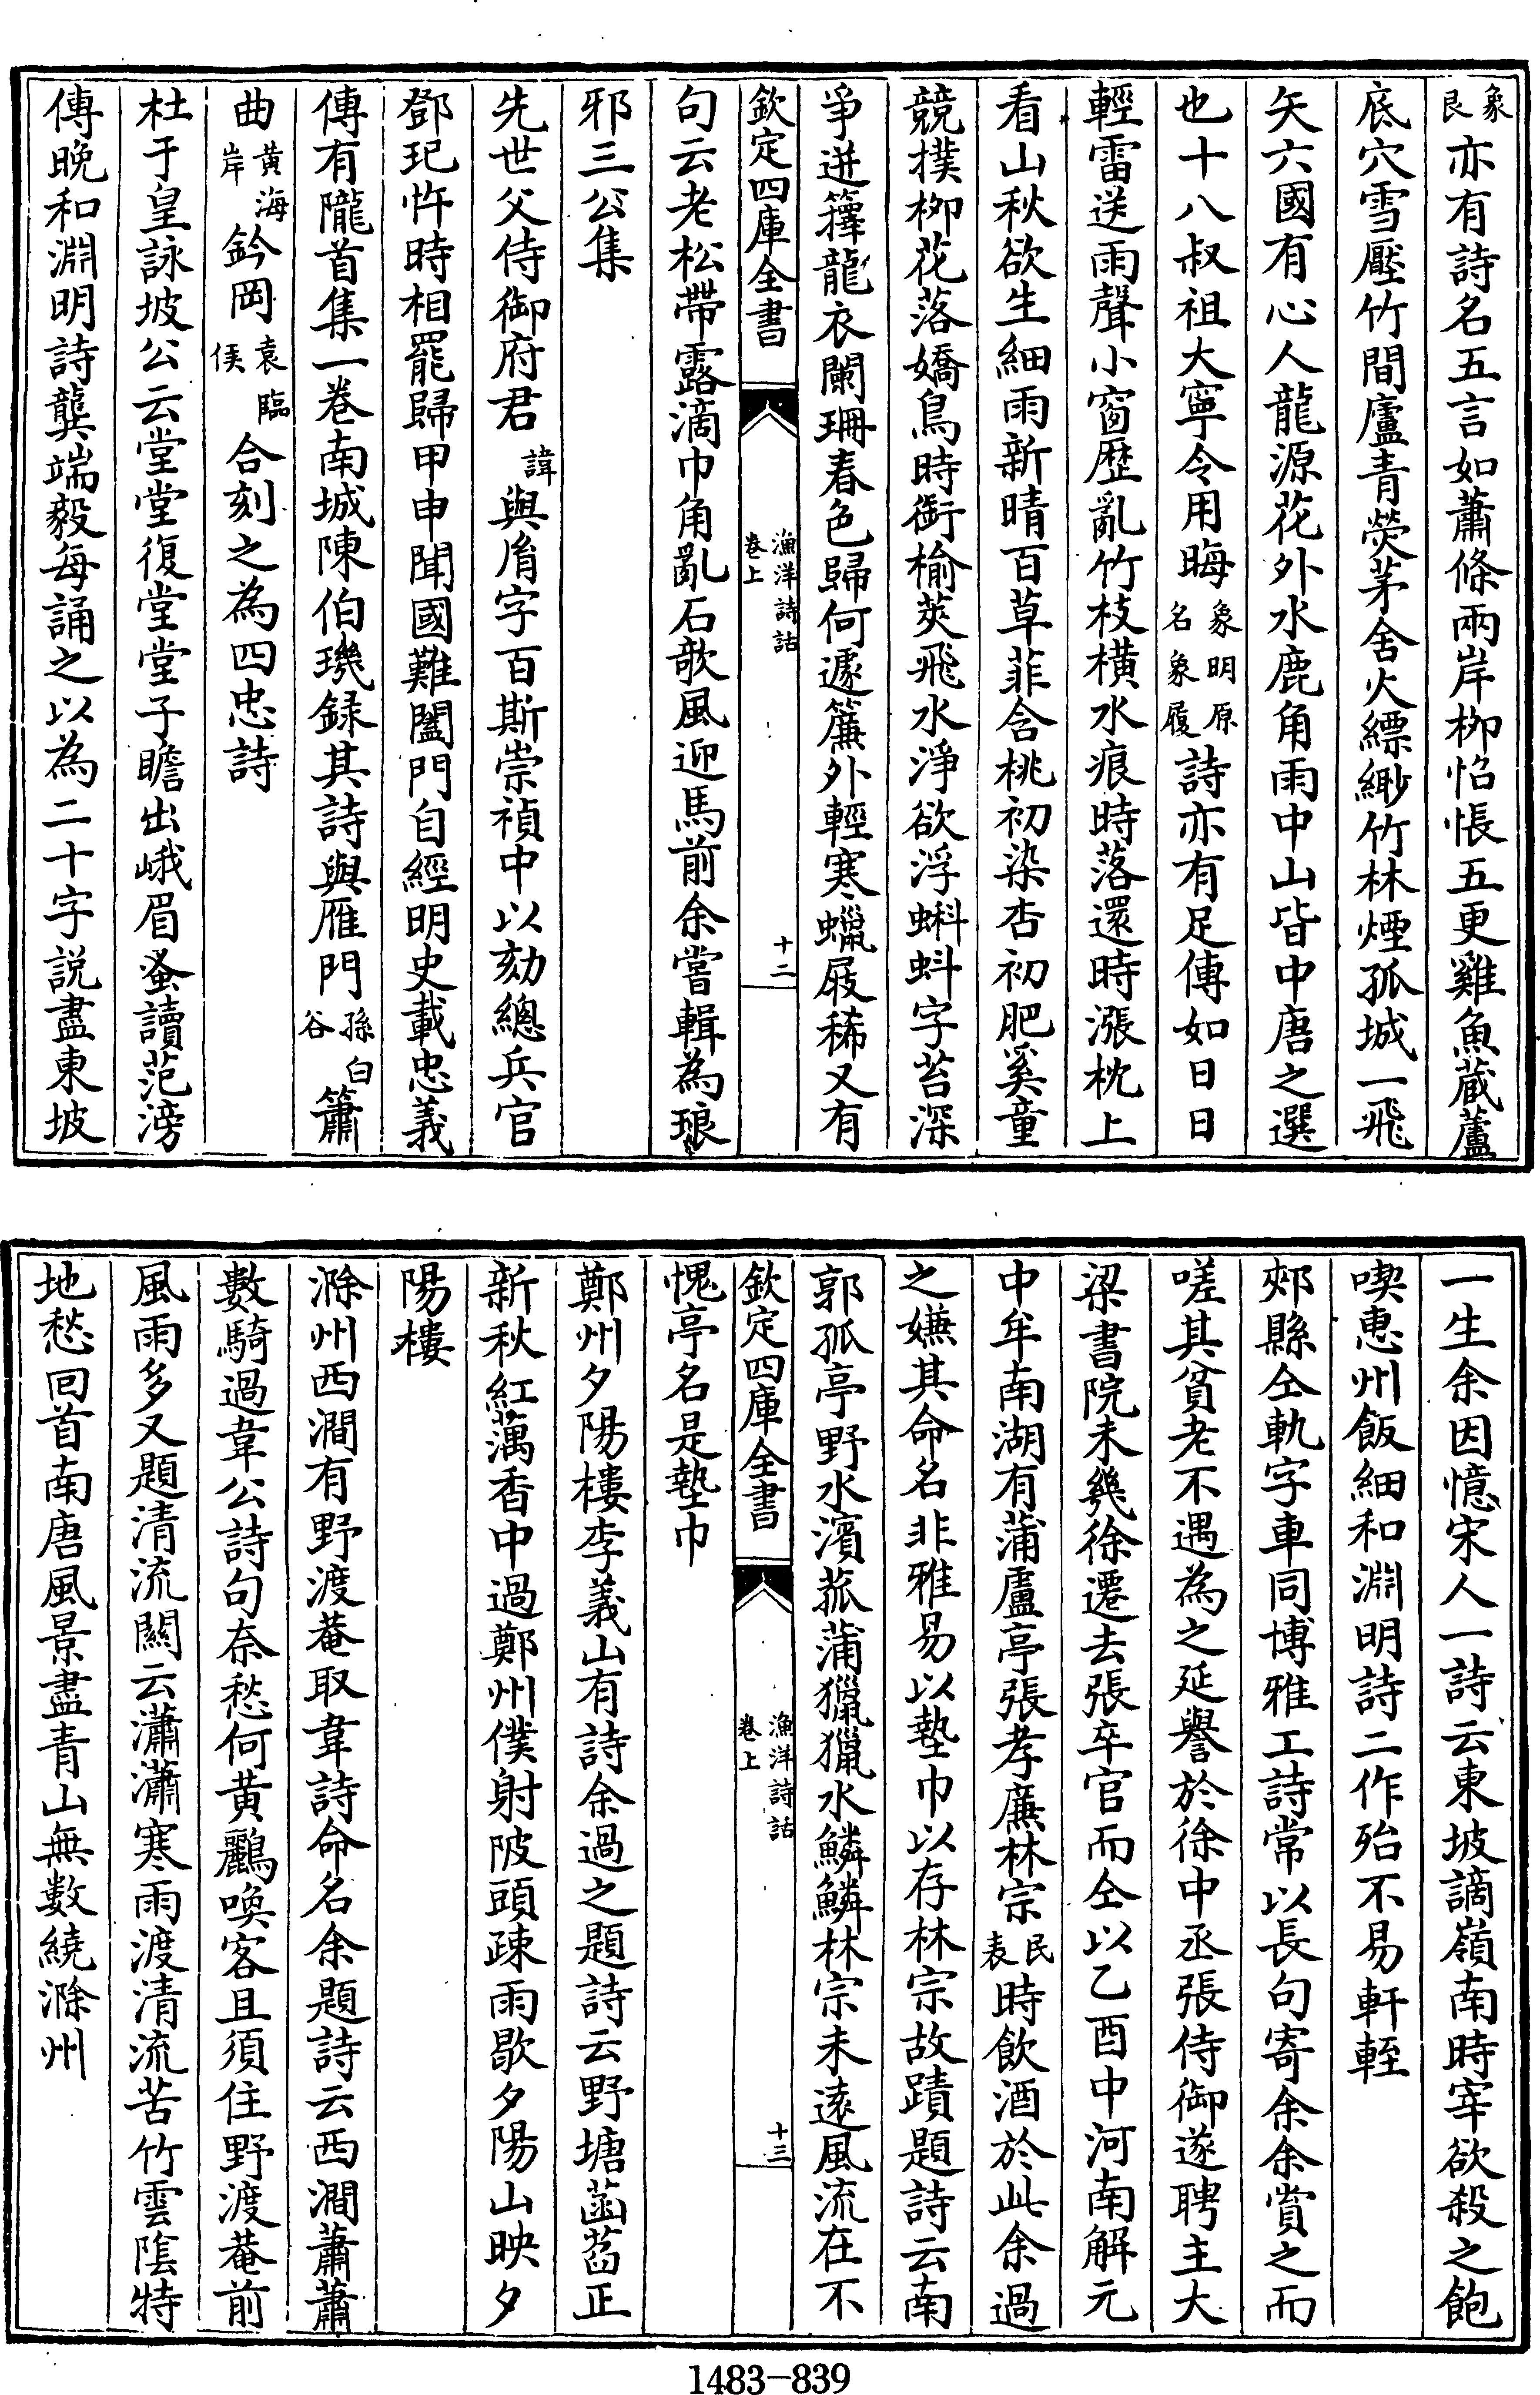 象艮亦有詩名五言如蕭條兩岸柳怊悵五更雞魚藏蘆
底穴雪壓竹間廬青熒茅舍火縹緲竹林煙孤城一飛
矢六國有心人龍源花外水鹿角雨中山皆中唐之選
也十八叔祖大寧令用晦象明原名象履詩亦有足傳如日日
輕雷送雨聲小窗歷亂竹枝橫水痕時落還時漲枕上
看山秋欲生細雨新晴百草菲含桃初染杏初肥奚童
競撲柳花落嬌鳥時銜榆莢飛水淨欲浮蝌蚪字苔深
爭迸籜龍衣闌珊春色歸何遽簾外輕寒蠟屐稀又有
欽定四庫全書
漁洋詩話
卷上
十二
句云老松帶露滴巾角亂石欹風迎馬前余嘗輯為琅
邪三公集
先世父侍御府君諱與胤字百斯崇禎中以劾總兵官
鄧玘忤時相罷歸甲申聞國難闔門自經明史載忠義
傳有隴首集一卷南城陳伯璣録其詩與雁門孫白谷簫
曲黃海岸鈐岡袁臨侯合刻之為四忠詩
杜于皇詠坡公云堂堂復堂堂子瞻出峨眉蚤讀范滂
傳晚和淵明詩龔端毅每誦之以為二十字說盡東坡
一生余因憶宋人一詩云東坡謫嶺南時宰欲殺之飽
喫惠州飯細和淵明詩二作殆不易軒輊
郟縣仝軌字車同博雅工詩常以長句寄余余賞之而
嗟其貧老不遇為之延譽於徐中丞張侍御遂聘主大
梁書院未幾徐遷去張卒官而仝以乙酉中河南解元
中牟南湖有蒲盧亭張孝廉林宗民表時飲酒於此余過
之嫌其命名非雅易以墊巾以存林宗故蹟題詩云南
郭孤亭野水濱菰蒲獵獵水鱗鱗林宗未遠風流在不
欽定四庫全書
漁洋詩話
卷上
十三
愧亭名是墊巾
鄭州夕陽樓李義山有詩余過之題詩云野塘菡萏正
新秋紅藕香中過鄭州僕射陂頭疎雨歇夕陽山映夕
陽樓
滁州西澗有野渡菴取韋詩命名余題詩云西澗蕭蕭
數騎過韋公詩句奈愁何黃鸝喚客且須住野渡菴前
風雨多又題清流關云瀟瀟寒雨渡清流苦竹雲陰特
地愁回首南唐風景盡青山無數繞滁州
1483-839